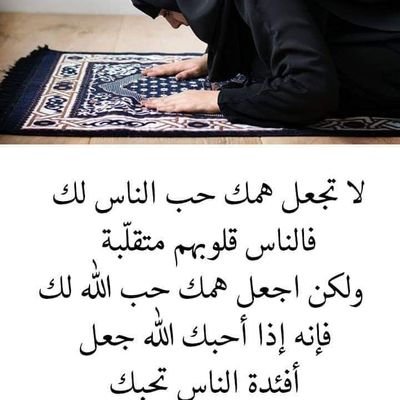 لا تجعل همك حب الناس لك
فالناس قلوبهم متقلّبة
ولكن اجعل همك حب الله لك
فإنه إذا أحبك الله جعل
أفئدة الناس تحبك